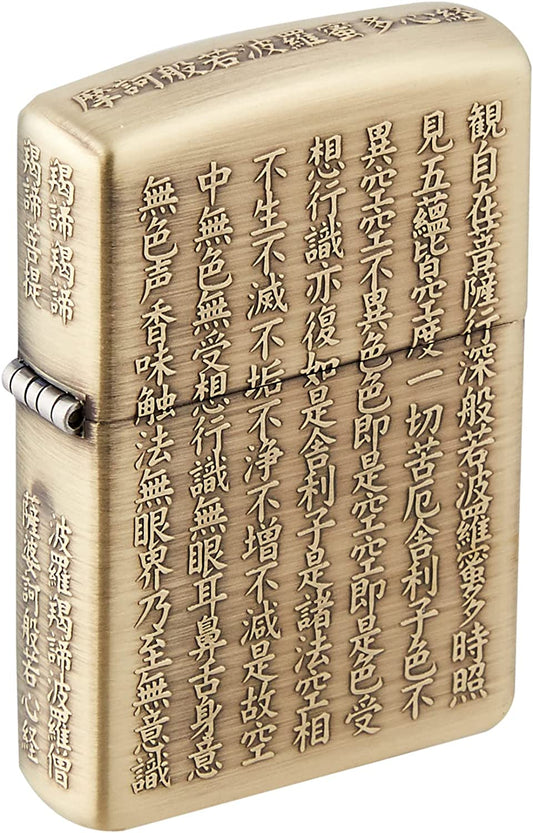 摩訶般若波羅蜜多心経
観自在菩薩行深般若波羅蜜多時照
見五蘊皆空度一切苦厄舎利子色不
異空空不異色色即是空空即是色受
想行識亦復如是舎利子是諸法空相
不生不滅不垢不浄不増不減是故空
中無色無受想行識無眼耳鼻舌身意
無色声香味触法無眼界乃至無意識
羯諦羯諦波羅羯諦波羅僧
羯諦菩提薩婆訶般若心経